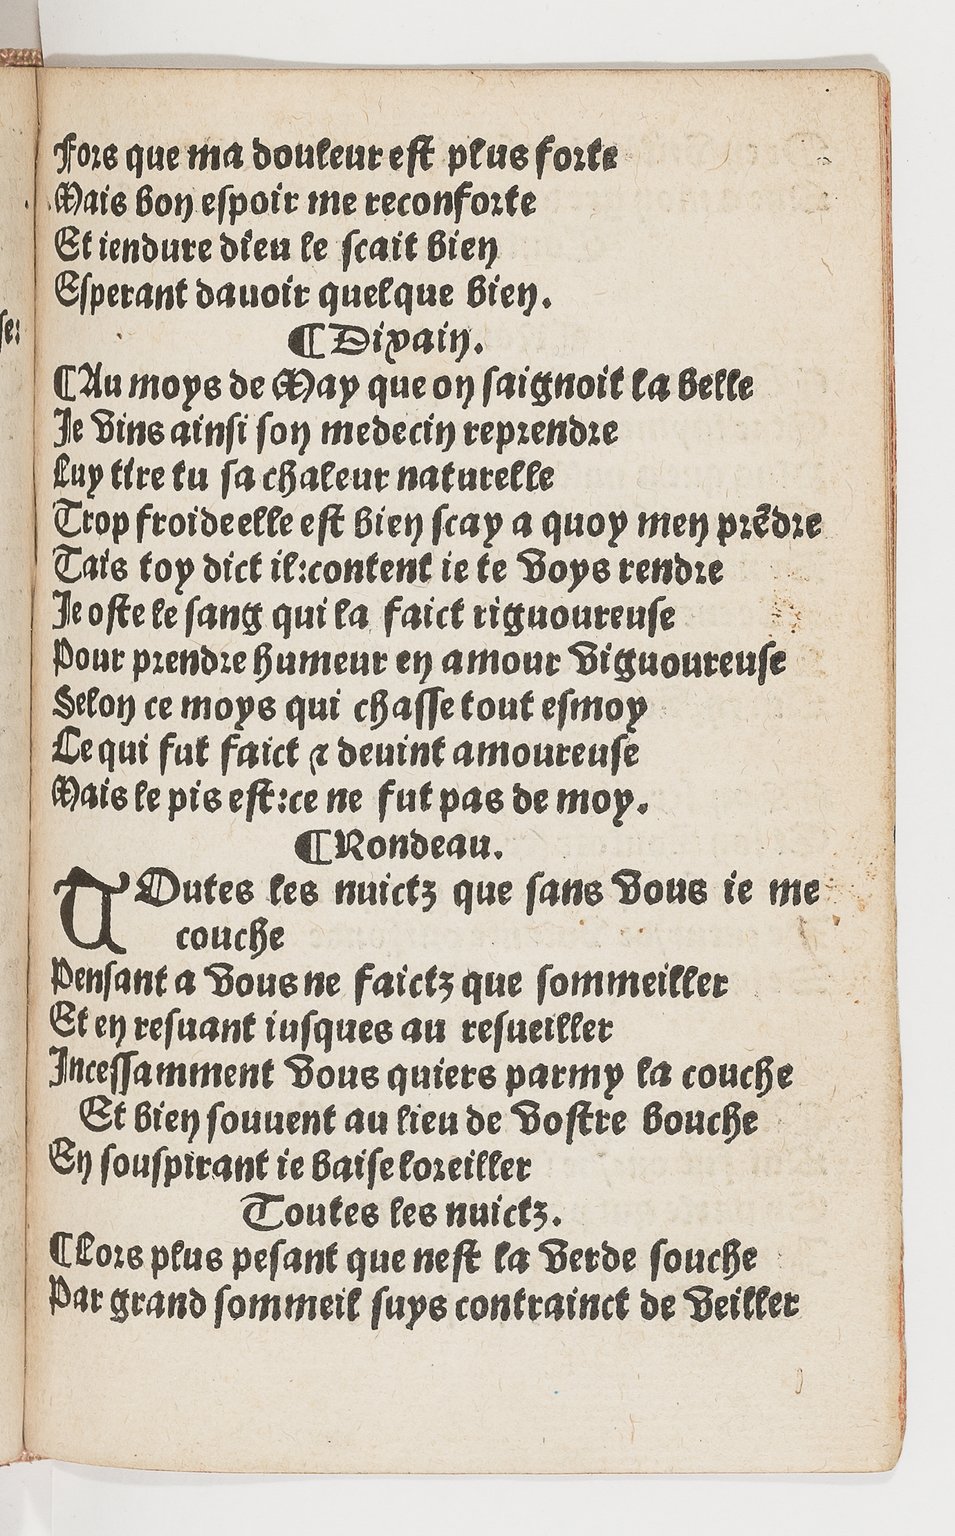 Fors que ma douleur est plus forte
Mais bon espoir me reconforte
Et iendure dieu le scait bien
Esperant dauoir quelque bien.
¶Dixain.
¶Au moys de May que on saignoit la belle
Je vins ainsi son medecin reprendre
Luy tire tu sa chaleur naturelle
Trop froide elle est bien scay a quoy men prẽdre
Tais toy dict il:content ie te voys rendre
Je oste le sang qui la faict riguoureuse
Pour prendre humeur en amour viguoureuse
Selon ce moys qui chasse tout esmoy
Ce qui fut faict ⁊ deuint amoureuse
Mais le pis est:ce ne fut pas de moy.
¶Rondeau.
TOutes les nuictz que sans vous ie me
couche
Pensant a vous ne faictz que sommeiller
Et en resuant iusques au resueiller
Incessamment vous quiers parmy la couche
Et bien souuent au lieu de vostre bouche
En souspirant ie baise loreiller
Toutes les nuictz.
¶Lors plus pesant que nest la verde souche
Par grand sommeil suys contrainct de veiller